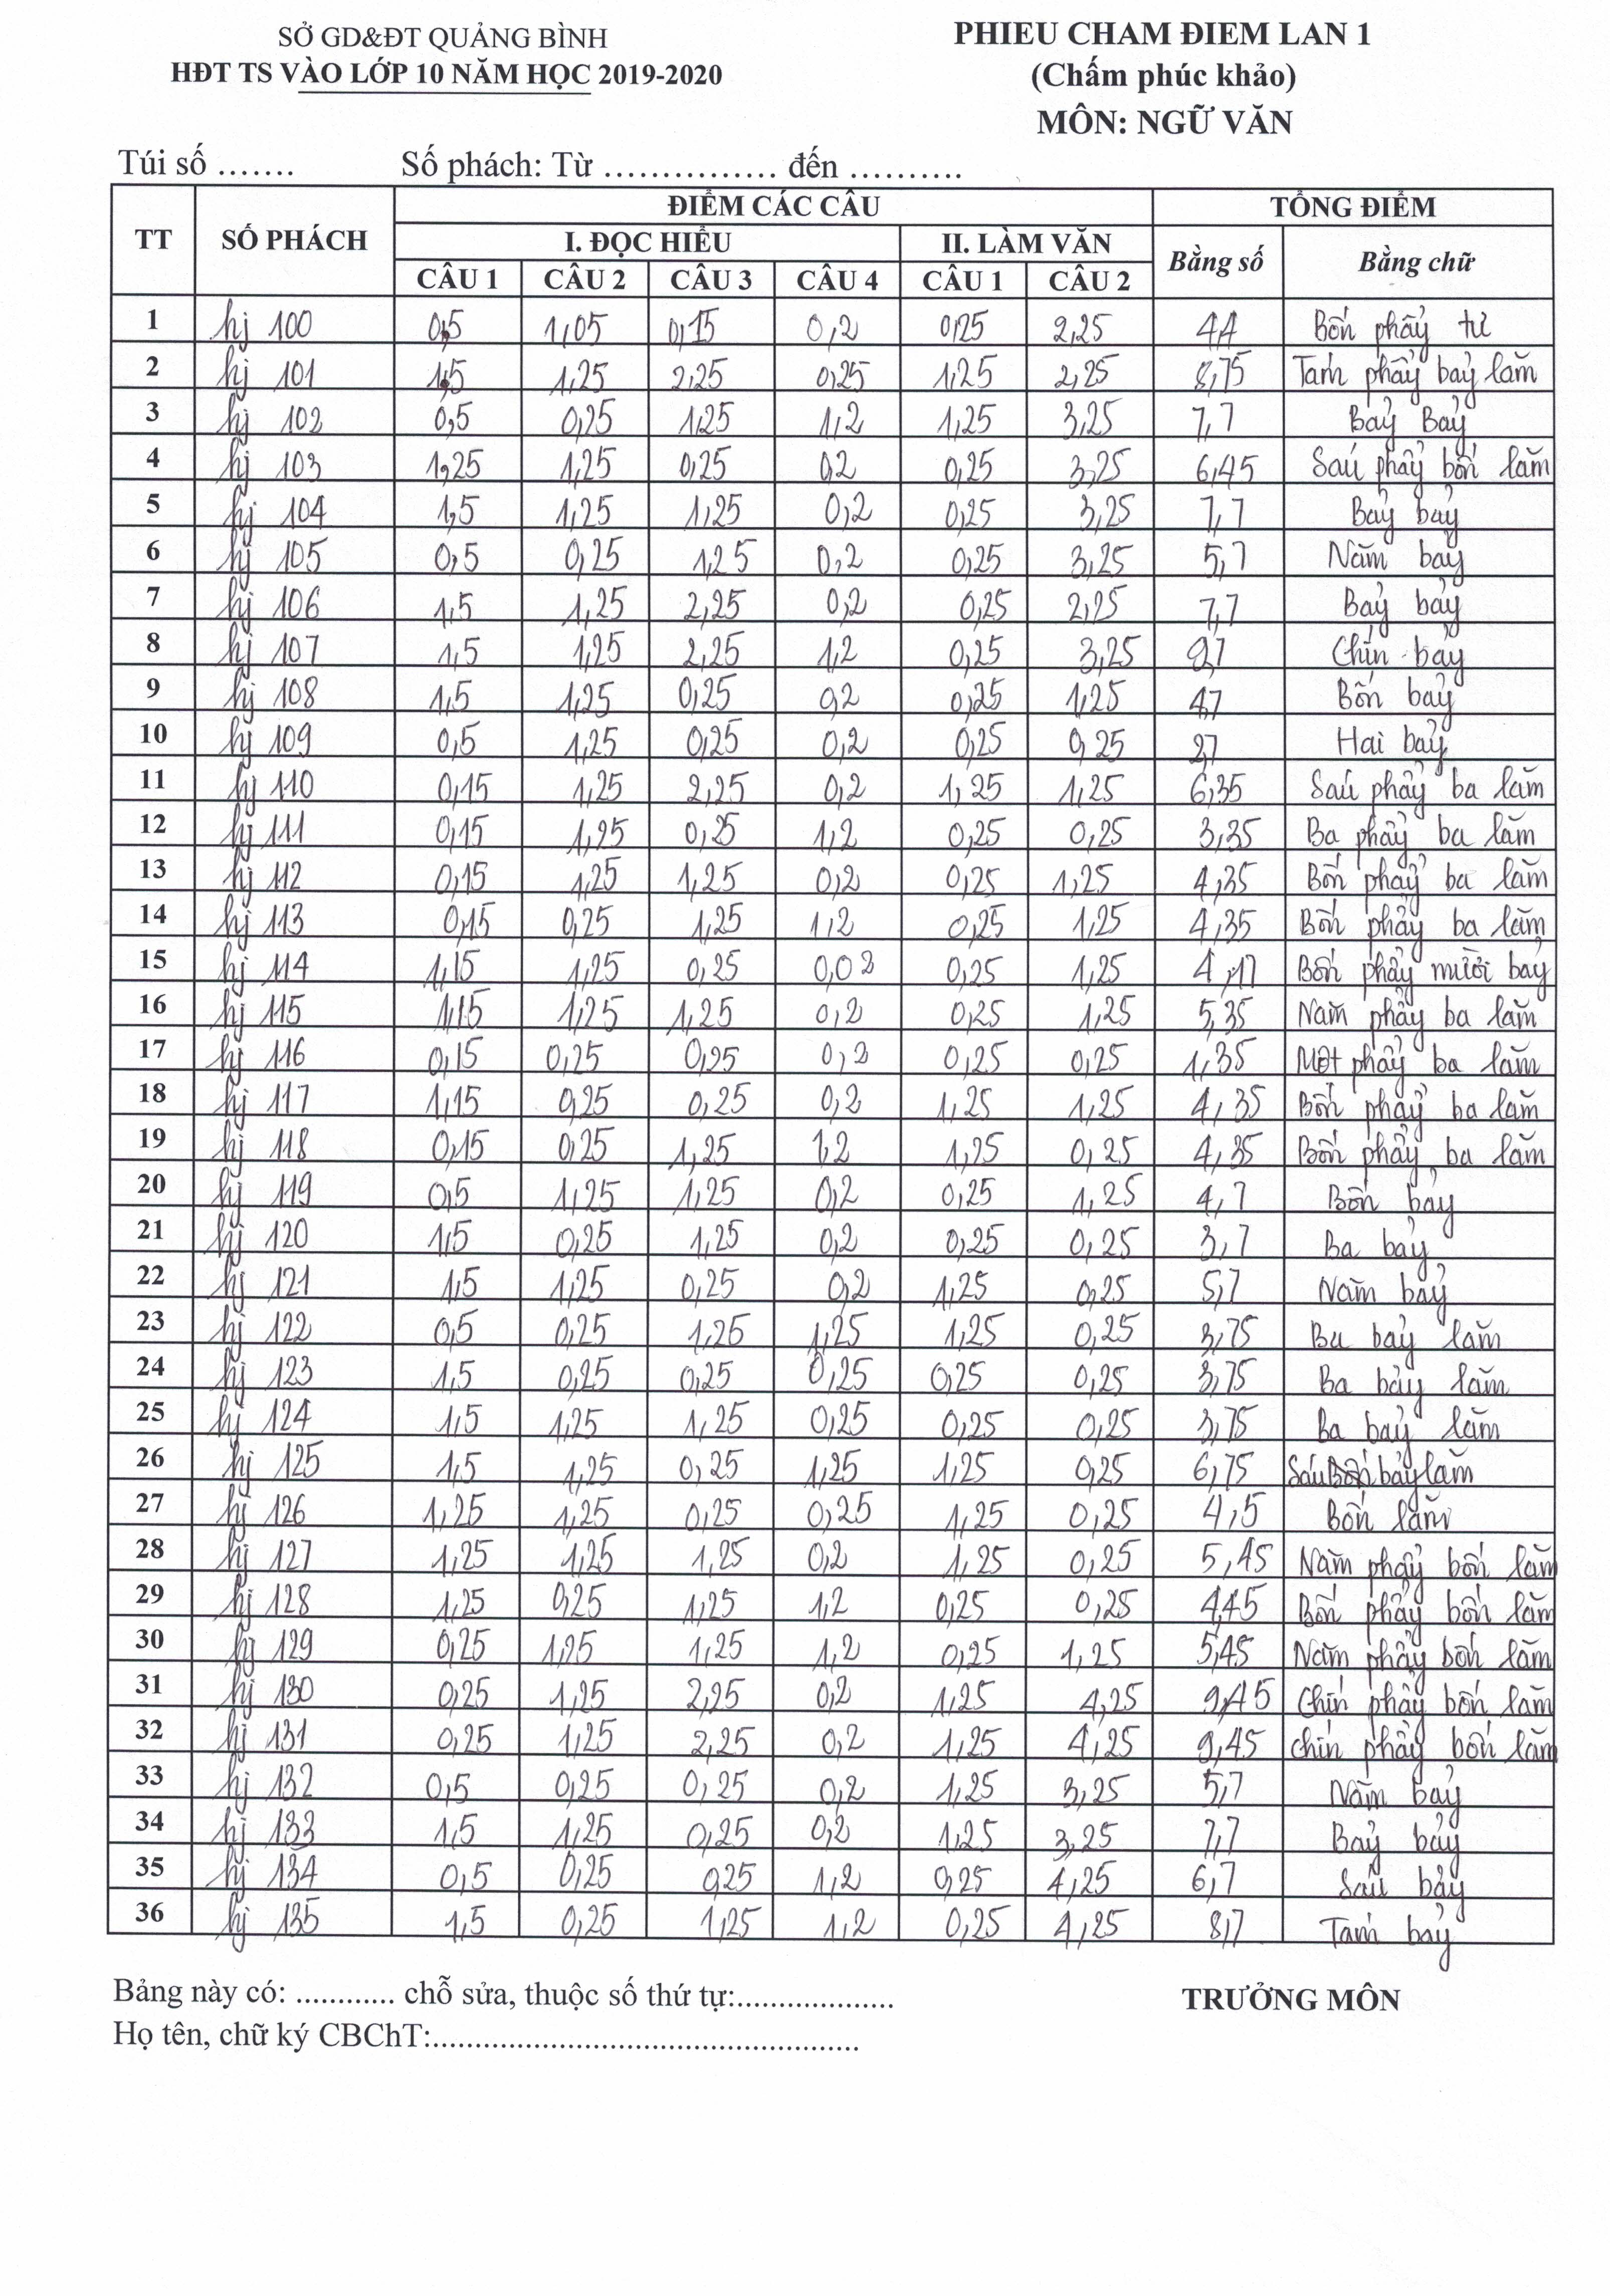 SỞ GD&ĐT QUẢNG BÌNH
HĐT TS VÀO LỚP 10 NĂM HỌC 2019-2020
PHIEU CHAM ĐIEM LAN 1
(Chấm phúc khảo)
MÔN: NGỮ VĂN
Túi số ....... Số phách: Từ ............... đến ..........
TT SỐ PHÁCH ĐIỂM CÁC CÂU TỔNG ĐIỂM
I. ĐỌC HIỂU II. LÀM VĂN Bằng số Bằng chữ
CÂU 1 CÂU 2 CÂU 3 CÂU 4 CÂU 1 CÂU 2
1 hj 100 0,5 1,05 0,15 0,2 0,25 2,25 4,4 Bốn phẩy tư
2 hj 101 1,5 1,25 2,25 0,25 1,25 2,25 8,75 Tám phẩy bảy lăm
3 hj 102 0,5 0,25 1,25 1,2 1,25 3,25 7,7 Bảy Bảy
4 hj 103 1,25 1,25 0,25 0,2 0,25 3,25 6,45 Sáu phẩy bốn lăm
5 hj 104 1,5 1,25 1,25 0,2 0,25 3,25 7,7 Bảy bảy
6 hj 105 0,5 0,25 1,25 0,2 0,25 3,25 5,7 Năm bảy
7 hj 106 1,5 1,25 2,25 0,2 0,25 2,25 7,7 Bảy bảy
8 hj 107 1,5 1,25 2,25 1,2 0,25 3,25 9,7 Chín bảy
9 hj 108 1,5 1,25 0,25 0,2 0,25 1,25 4,7 Bốn bảy
10 hj 109 0,5 1,25 0,25 0,2 0,25 0,25 2,7 Hai bảy
11 hj 110 0,15 1,25 2,25 0,2 1,25 1,25 6,35 Sáu phẩy ba lăm
12 hj 111 0,15 1,25 0,25 1,2 0,25 0,25 3,35 Ba phẩy ba lăm
13 hj 112 0,15 1,25 1,25 0,2 0,25 1,25 4,35 Bốn phẩy ba lăm
14 hj 113 0,15 0,25 1,25 1,2 0,25 1,25 4,35 Bốn phẩy ba lăm
15 hj 114 1,15 1,25 0,25 0,02 0,25 1,25 4,17 Bốn phẩy mười bảy
16 hj 115 1,15 1,25 1,25 0,2 0,25 1,25 5,35 Năm phẩy ba lăm
17 hj 116 0,15 0,25 0,25 0,2 0,25 0,25 1,35 Một phẩy ba lăm
18 hj 117 1,15 0,25 0,25 0,2 1,25 1,25 4,35 Bốn phẩy ba lăm
19 hj 118 0,15 0,25 1,25 1,2 1,25 0,25 4,35 Bốn phẩy ba lăm
20 hj 119 0,5 1,25 1,25 0,2 0,25 1,25 4,7 Bốn bảy
21 hj 120 1,5 0,25 1,25 0,2 0,25 0,25 3,7 Ba bảy
22 hj 121 1,5 1,25 0,25 0,2 1,25 0,25 5,7 Năm bảy
23 hj 122 0,5 0,25 1,25 1,25 1,25 0,25 3,75 Ba bảy lăm
24 hj 123 1,5 0,25 0,25 0,25 0,25 0,25 3,75 Ba bảy lăm
25 hj 124 1,5 1,25 1,25 0,25 0,25 0,25 3,75 Ba bảy lăm
26 hj 125 1,5 1,25 0,25 1,25 1,25 0,25 6,75 Sáu bảy lăm
27 hj 126 1,25 1,25 0,25 0,25 1,25 0,25 4,5 Bốn lăm
28 hj 127 1,25 1,25 1,25 0,2 1,25 0,25 5,45 Năm phẩy bốn lăm
29 hj 128 1,25 0,25 1,25 1,2 0,25 0,25 4,45 Bốn phẩy bốn lăm
30 hj 129 0,25 1,25 1,25 1,2 0,25 1,25 5,45 Năm phẩy bốn lăm
31 hj 130 0,25 1,25 2,25 0,2 1,25 4,25 9,45 Chín phẩy bốn lăm
32 hj 131 0,25 1,25 2,25 0,2 1,25 4,25 9,45 chín phẩy bốn lăm
33 hj 132 0,5 0,25 0,25 0,2 1,25 3,25 5,7 Năm bảy
34 hj 133 1,5 1,25 0,25 0,2 1,25 3,25 7,7 Bảy bảy
35 hj 134 0,5 0,25 0,25 1,2 0,25 4,25 6,7 Sáu bảy
36 hj 135 1,5 0,25 1,25 1,2 0,25 4,25 8,7 Tám bảy
Bảng này có: ............ chỗ sửa, thuộc số thứ tự:................... TRƯỞNG MÔN
Họ tên, chữ ký CBChT:....................................................